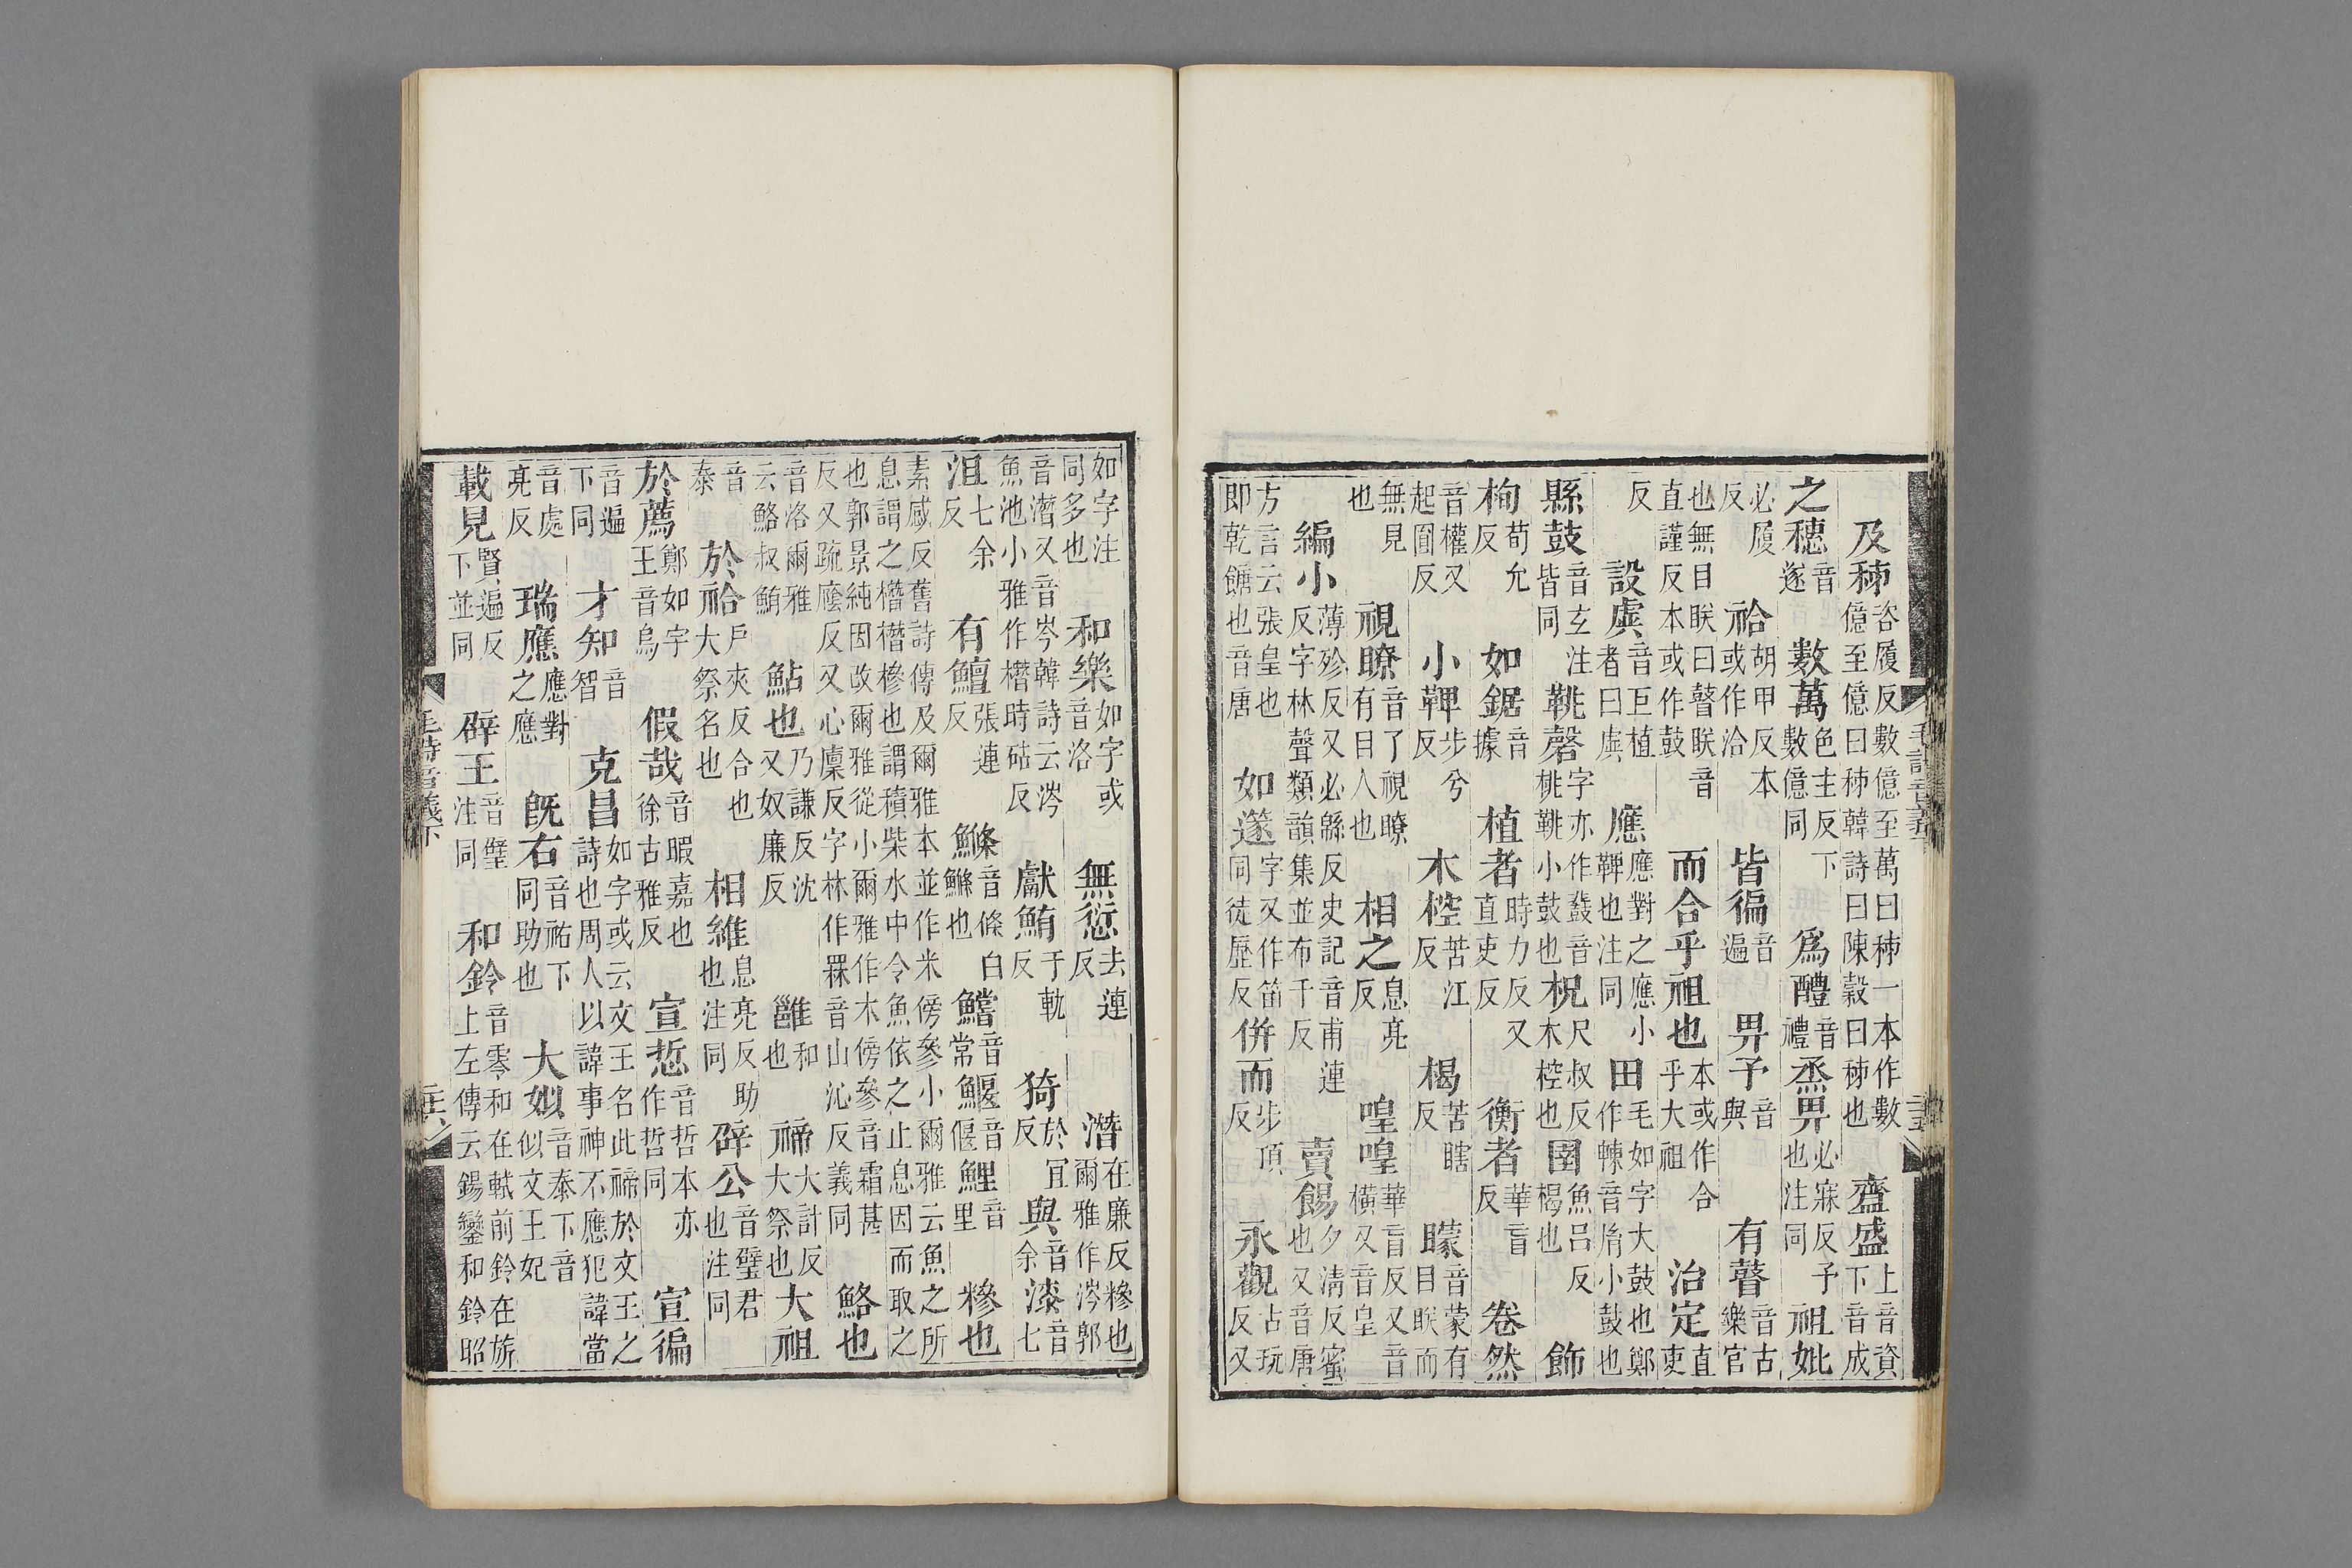 及秭咨履反數億至萬曰秭一本作數億至億曰秭韓詩曰陳穀曰秭也齍盛上音資下音成
之穗音遂數萬色主反下數億同爲醴音禮烝畀必寐反予也注同祖妣
必履反祫胡甲反本或作洽皆徧音遍畀予音與有瞽音古樂官
也無目眹曰瞽眹音直謹反本或作鼓而合乎祖也本或作合乎大祖治定直吏
反設虡音巨植者曰虡應應對之應小鞞也注同田毛如字大鼓也鄭作朄音胤小鼓也
縣鼓音玄注皆同鞉磬字亦作鼗音桃鞉小鼓也柷尺叔反木椌也圉魚呂反楬也飾
栒荀允反如鋸音據植者時力反又直吏反衡者華盲反卷然
音權又起圓反小鞞步兮反木椌苦江反楬苦瞎反矇音蒙有目眹而
無見也視瞭音了視瞭有目人也相之息亮反喤喤華盲反又音橫又音皇
編小薄殄反又必緜反史記音甫連反字林聲類韻集並布千反賣餳夕清反蜜也又音唐
方言云張皇也即乾餹也音唐如篴字又作笛同徒歷反併而步頂反永觀古玩反又
如字注同多也和樂如字或音洛無愆去連反潛在廉反糝也爾雅作涔郭
音潛又音岑韓詩云涔魚池小雅作橬時砧反獻鮪于軌反猗於宜反與音余漆音七
沮七余反有鱣張連反鰷音條白鰷也鱨音常鰋音偃鯉音里糝也
素感反舊詩傳及爾雅本並作米傍參小爾雅云魚之所息謂之橬橬槮也謂積柴水中令魚依之止息因而取之
也郭景純因改爾雅從小爾雅作木傍參音霜甚反又疏廕反又心廩反字林作罧音山沁反義同鮥也
音洛爾雅云鮥叔鮪鮎也乃謙反沈又奴廉反雝和也禘大計反大祭也大祖
音泰於祫戶夾反合也大祭名也相維息亮反助也注同辟公音璧君也注同
於薦鄭如字王音烏假哉音暇嘉也徐古雅反宣悊音哲本亦作哲同宣徧
音遍下同才知音智克昌如字或云文王名此禘於文王之詩也周人以諱事神不應犯諱當
音處亮反瑞應應對之應既右音祐下同助也大姒音泰下音似文王妃
載見賢遍反下並同辟王音璧注同和鈴音零和在軾前鈴在旂上左傳云鍚鑾和鈴昭
毛詩音義下